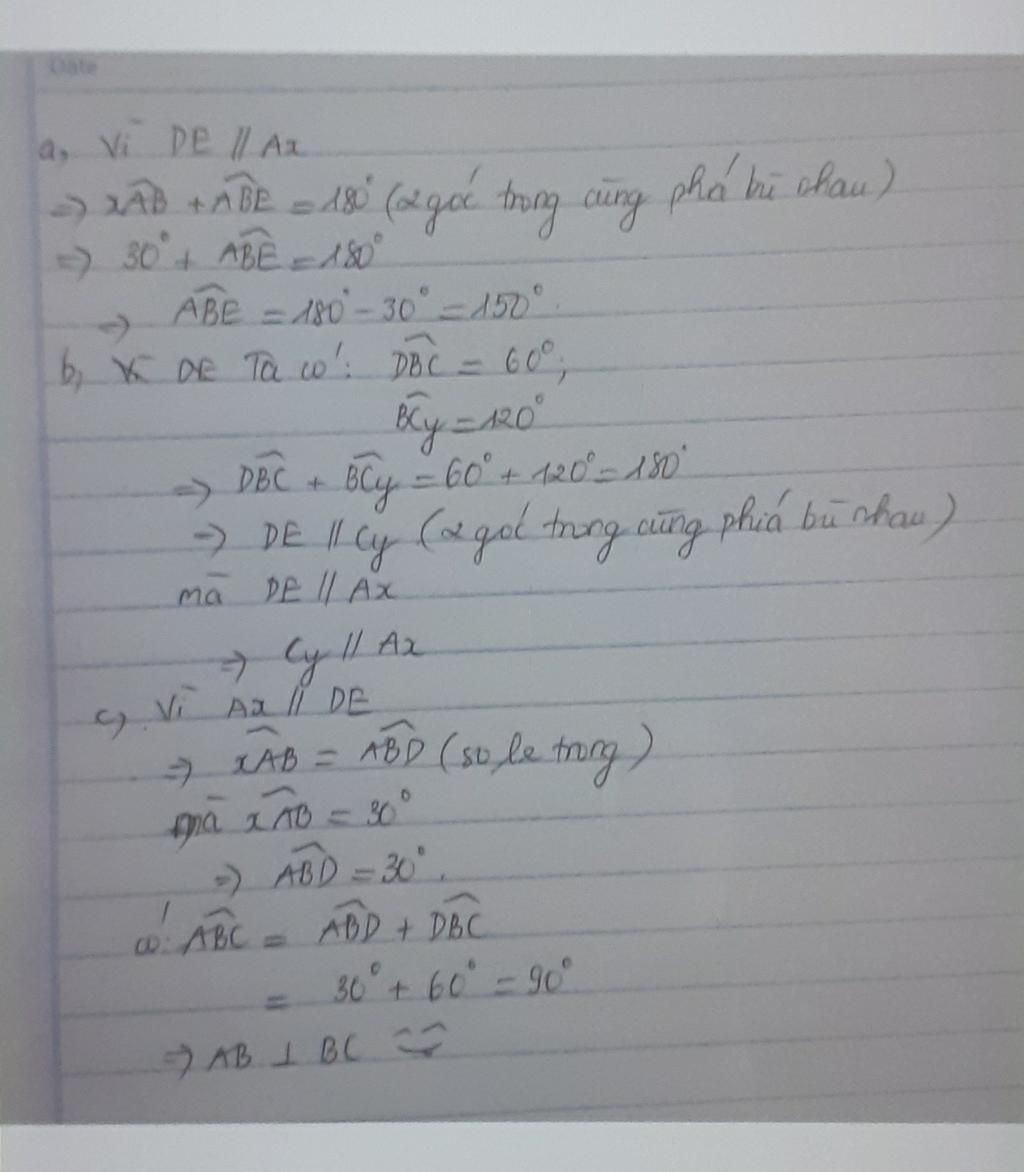 Date
a, Vì DE // Ax
=> xÂB + ABE = 180° (2 góc trong cùng phá bù nhau)
=> 30° + ABE = 180°
=> ABE = 180° - 30° = 150°.
b, DE Ta có: DBC = 60°;
BCy = 120°
=> DBC + BCy = 60° + 120° = 180°
=> DE // Cy (2 góc trong cùng phiá bù nhau)
mà DE // Ax
=> Cy // Ax
c, Vì Ax // DE
=> xAB = ABD (so le trong)
mà xAB = 30°
=> ABD = 30°.
có: ABC = ABD + DBC
= 30° + 60° = 90°
=> AB ⊥ BC